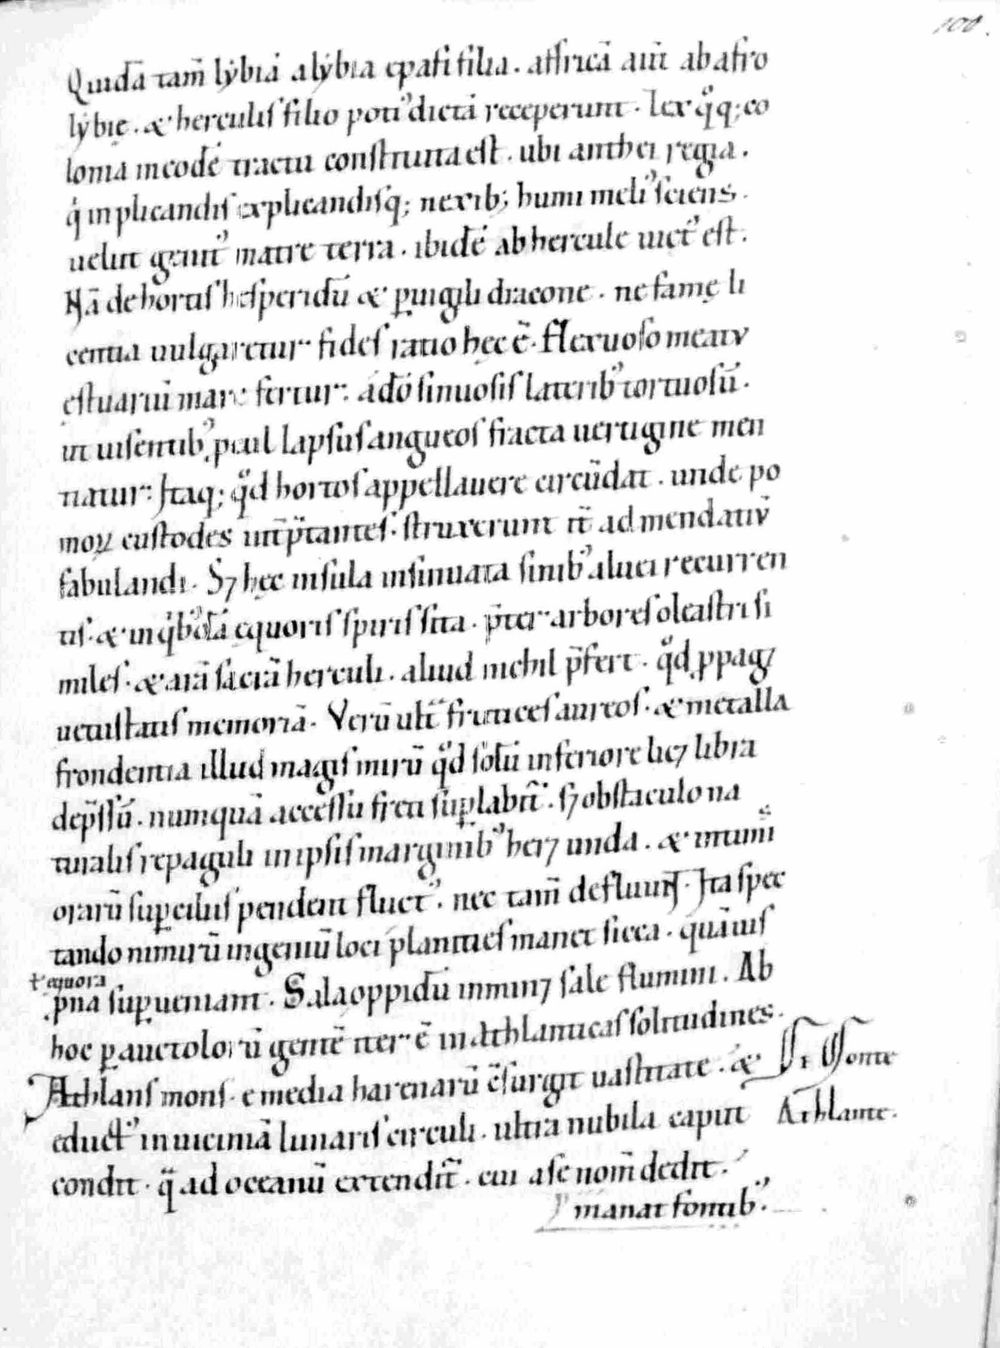 100.
Quidā tam̄ lẏbiā a lẏbia epafi filia . affricā aut̄ ab afro
lẏbię . & herculis filio poti᾽ dictā receperunt . Lex qͦq; co
lonia in eodē tractu constructa est . ubi anthei regia .
qͥ inplicandis explicandisq; nexib; humi meli᾽ sciens .
uelut genit᾽ matre terra . ibidē ab hercule uict᾽ est .
Nā de hortis hesperidū & ꝑuigili dracone . ne famę li
centia uulgaretur fides ratio hęc ē . flexuoso meatu
ęstuariū mare fertur : adō sinuosis laterib᾽ tortuosū .
ut uisentib᾽ ꝓcul lapsus angueos fracta uertigine men
tiatur : Itaq; qͦd hortos appellauere circūdat . unde po
moꝝ custodes int̄p̄tantes . struxerunt it̄ ad mendatiū
fabulandi . Sꝫ hęc insula insinuata sinib᾽ aluei recurren
tis . & in qͥb᾽dā equoris spiris sita . p̄ter arbores oleastri si
miles . & arā sacrā herculi . aliud nichil p̄fert . qͦd ꝓpagꝫ
uetustatis memoriā . Verū ult̄ frutices aureos . & metalla
frondentia illud magis mirū qͦd solū inferiore licꝫ libra
dep̄ssū . numquā accessu freti suꝑlabit̄ . sꝫ obstaculo na
turalis repaguli in ipsis marginib᾽ herꝫ unda . & intimis
orarū suꝑciliis pendent fluct᾽ . nec tam̄ defluunt . Ita spec
tando nimirū ingeniū loci planities manet sicca . quāuis
ł equora .
ꝓna suꝑueniant . Sala oppidū inminꝫ sale flumini . Ab
hoc ꝑ auctolorū gentē iter ē in Athlanticas solitudines .
Athlans mons . e media harenarū ɔ̄surgit uastitate . & De Monte
educt᾽ in uiciniā lunaris circuli . ultra nubila caput Athlante .
condit . qͣ ad oceanū extendit̄ . cui a se nom̄ dedit .
manat fontib᾽ .